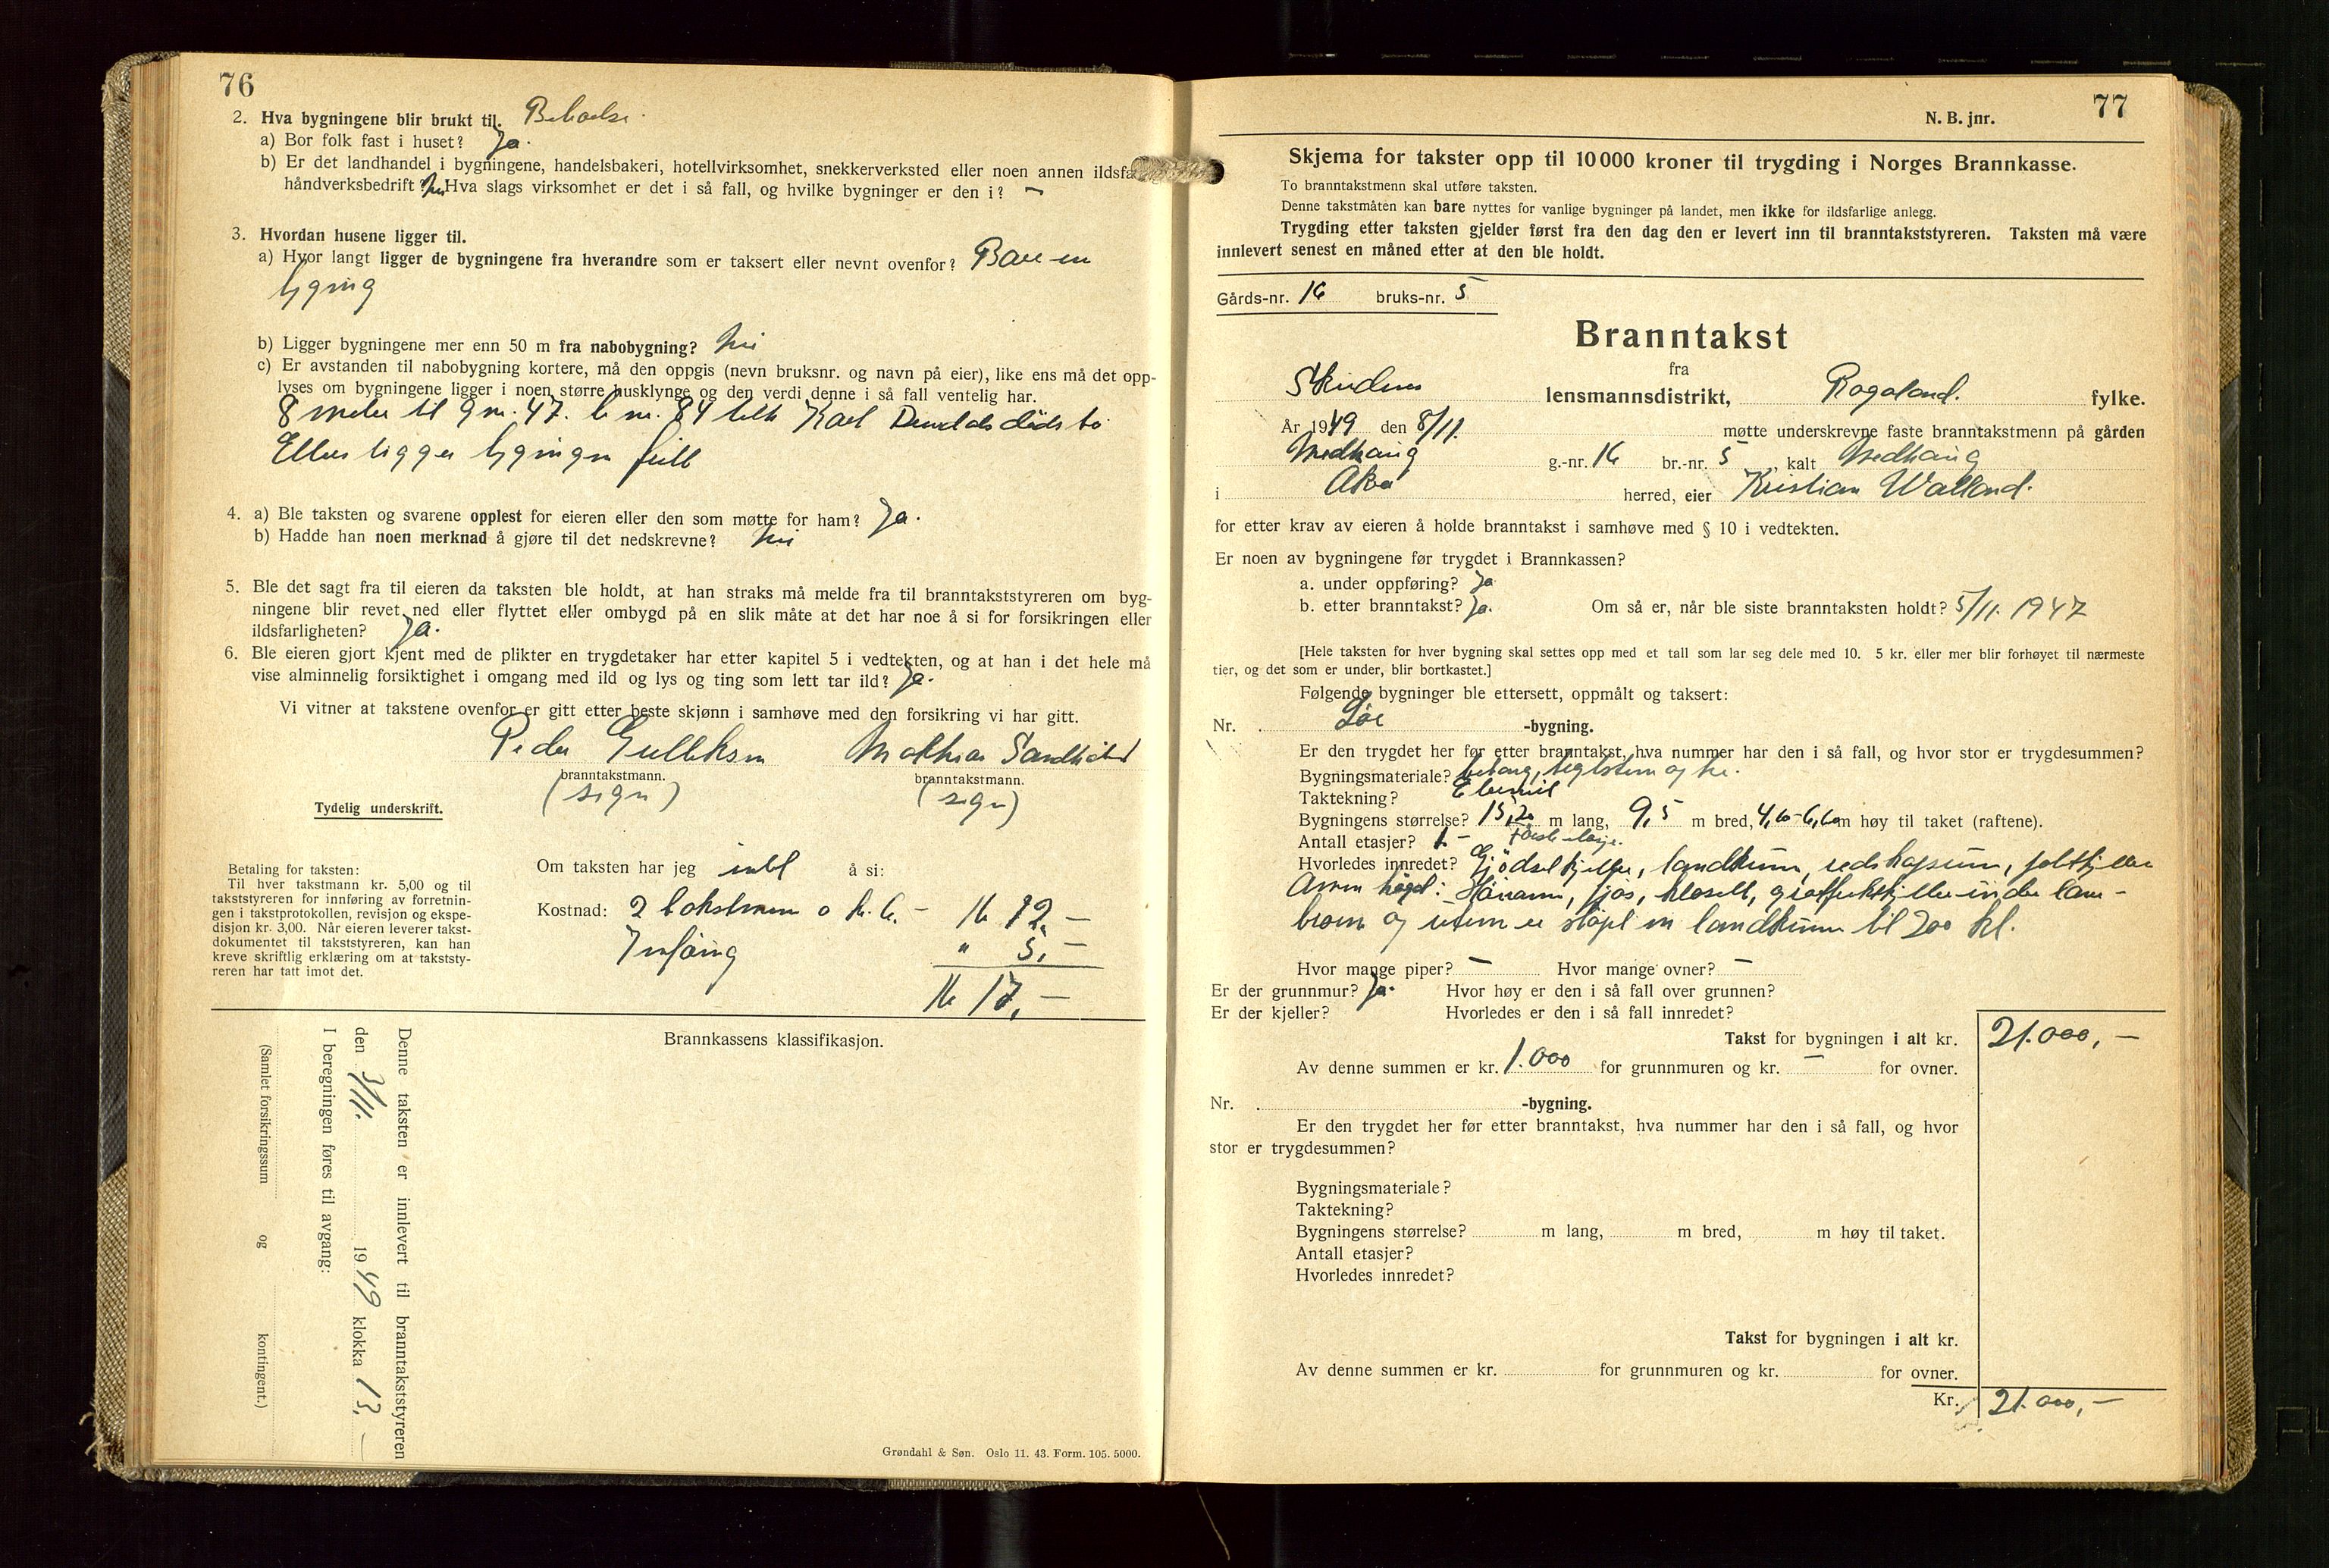 76
2. Hva bygningene blir brukt til. Beboelse.
a) Bor folk fast i huset? Ja.
b) Er det landhandel i bygningene, handelsbakeri, hotellvirksomhet, snekkerverksted eller noen annen ildsfa
håndverksbedrift? Nei Hva slags virksomhet er det i så fall, og hvilke bygninger er den i? –
3. Hvordan husene ligger til.
a) Hvor langt ligger de bygningene fra hverandre som er taksert eller nevnt ovenfor? Bare en
bygning
b) Ligger bygningene mer enn 50 m fra nabobygning? Nei
c) Er avstanden til nabobygning kortere, må den oppgis (nevn bruksnr. og navn på eier), like ens må det opp-
lyses om bygningene ligger i noen større husklynge og den verdi denne i så fall ventelig har.
8 meter til g.nr. 47. b.nr. 84 Karl dødsbo
Ellers ligger bygningen fritt
4. a) Ble taksten og svarene opplest for eieren eller den som møtte for ham? Ja.
b) Hadde han noen merknad å gjøre til det nedskrevne? Nei
5. Ble det sagt fra til eieren da taksten ble holdt, at han straks må melde fra til branntakststyreren om byg-
ningene blir revet ned eller flyttet eller ombygd på en slik måte at det har noe å si for forsikringen eller
ildsfarligheten? Ja.
6. Ble eieren gjort kjent med de plikter en trygdetaker har etter kapitel 5 i vedtekten, og at han i det hele må
vise alminnelig forsiktighet i omgang med ild og lys og ting som lett tar ild? Ja.
Vi vitner at takstene ovenfor er gitt etter beste skjønn i samhøve med den forsikring vi har gitt.
Peder Gulliksen Mathias
branntakstmann. branntakstmann.
(sign) (sign)
Tydelig underskrift.
Betaling for taksten:
Til hver takstmann kr. 5,00 og til
takststyreren for innføring av forretnin-
gen i takstprotokollen, revisjon og ekspe-
disjon kr. 3,00. Når eieren leverer takst-
dokumentet til takststyreren, kan han
kreve skriftlig erklæring om at takststy-
reren har tatt imot det.
Om taksten har jeg intet å si:
Kostnad: 2 takstmenn a kr. 6.– kr 12,–
Innføring " 5,–
kr 17,–
Denne taksten er innlevert til branntakststyreren
den 3/11. 1949 klokka 13,–
I beregningen føres til avgang:
(Samlet forsikringssum og kontingent.)
Brannkassens klassifikasjon.
Grøndahl & Søn. Oslo 11. 43. Form. 105. 5000.
77
N. B. jnr.
Skjema for takster opp til 10 000 kroner til trygding i Norges Brannkasse.
To branntakstmenn skal utføre taksten.
Denne takstmåten kan bare nyttes for vanlige bygninger på landet, men ikke for ildsfarlige anlegg.
Trygding etter taksten gjelder først fra den dag den er levert inn til branntakststyreren. Taksten må være
innlevert senest en måned etter at den ble holdt.
Gårds-nr. 16 bruks-nr. 5
Branntakst
fra
Skudenes lensmannsdistrikt, Rogaland. fylke.
År 1949 den 8/11. møtte underskrevne faste branntakstmenn på gården
Medhaug g.-nr. 16 br.-nr. 5, kalt Medhaug
i Åkra herred, eier Kristian Walland.
for etter krav av eieren å holde branntakst i samhøve med § 10 i vedtekten.
Er noen av bygningene før trygdet i Brannkassen?
a. under oppføring? Ja
b. etter branntakst? Ja. Om så er, når ble siste branntaksten holdt? 5/11. 1947
[Hele taksten for hver bygning skal settes opp med et tall som lar seg dele med 10. 5 kr. eller mer blir forhøyet til nærmeste
tier, og det som er under, blir bortkastet.]
Følgende bygninger ble ettersett, oppmålt og taksert:
Nr. Løe -bygning.
Er den trygdet her før etter branntakst, hva nummer har den i så fall, og hvor stor er trygdesummen?
Bygningsmateriale? betong, teglstein og tre.
Taktekning? Eternit
Bygningens størrelse? 15,20 m lang, 9,5 m bred, 4,60–6,60 m høy til taket (raftene).
Antall etasjer? 1 – Første etasje.
Hvorledes innredet? Gjødselkjeller, landkum, redskapsrum,
Annen høgd: Hørom, fjøs, klosett, under låve-
broen og utenom er støpt en landkum til 200 hl.
Hvor mange piper? – Hvor mange ovner? –
Er der grunnmur? Ja. Hvor høy er den i så fall over grunnen?
Er der kjeller? Hvorledes er den i så fall innredet?
Takst for bygningen i alt kr. 21.000,–
Av denne summen er kr. 1.000 for grunnmuren og kr. – for ovner.
Nr. -bygning.
Er den trygdet her før etter branntakst, hva nummer har den i så fall, og hvor
stor er trygdesummen?
Bygningsmateriale?
Taktekning?
Bygningens størrelse? m lang, m bred, m høy til taket.
Antall etasjer?
Hvorledes innredet?
Takst for bygningen i alt kr.
Av denne summen er kr. for grunnmuren og kr. for ovner.
Kr. 21.000,–